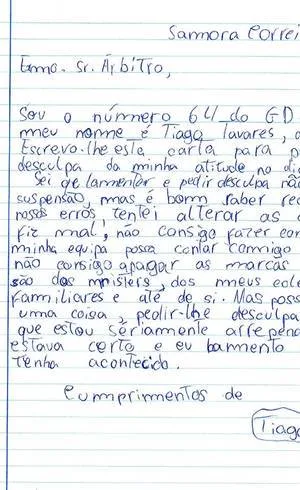 Samora Correi
Exmo. Sr. Árbitro,
Sou o número 64 do GD
meu nome é Tiago Tavares, 
Escrevo-lhe esta carta para p
desculpa da minha atitude no di
Sei qe lamentar e pedir desculpa nã
suspensão, mas é bom saber rec
nossos erros, tentei alterar as c
fiz mal, não consigo fazer com
minha equipa possa contar comigo
não consigo apagar as marcas
são dos misters, dos meus cole
familiares e até de si. Mas poss
uma coisa, pedir-lhe desculpa
que estou sériamente arrepend
estava certo e eu lamento
tenha acontecido.
Cumprimentos de
Tiago